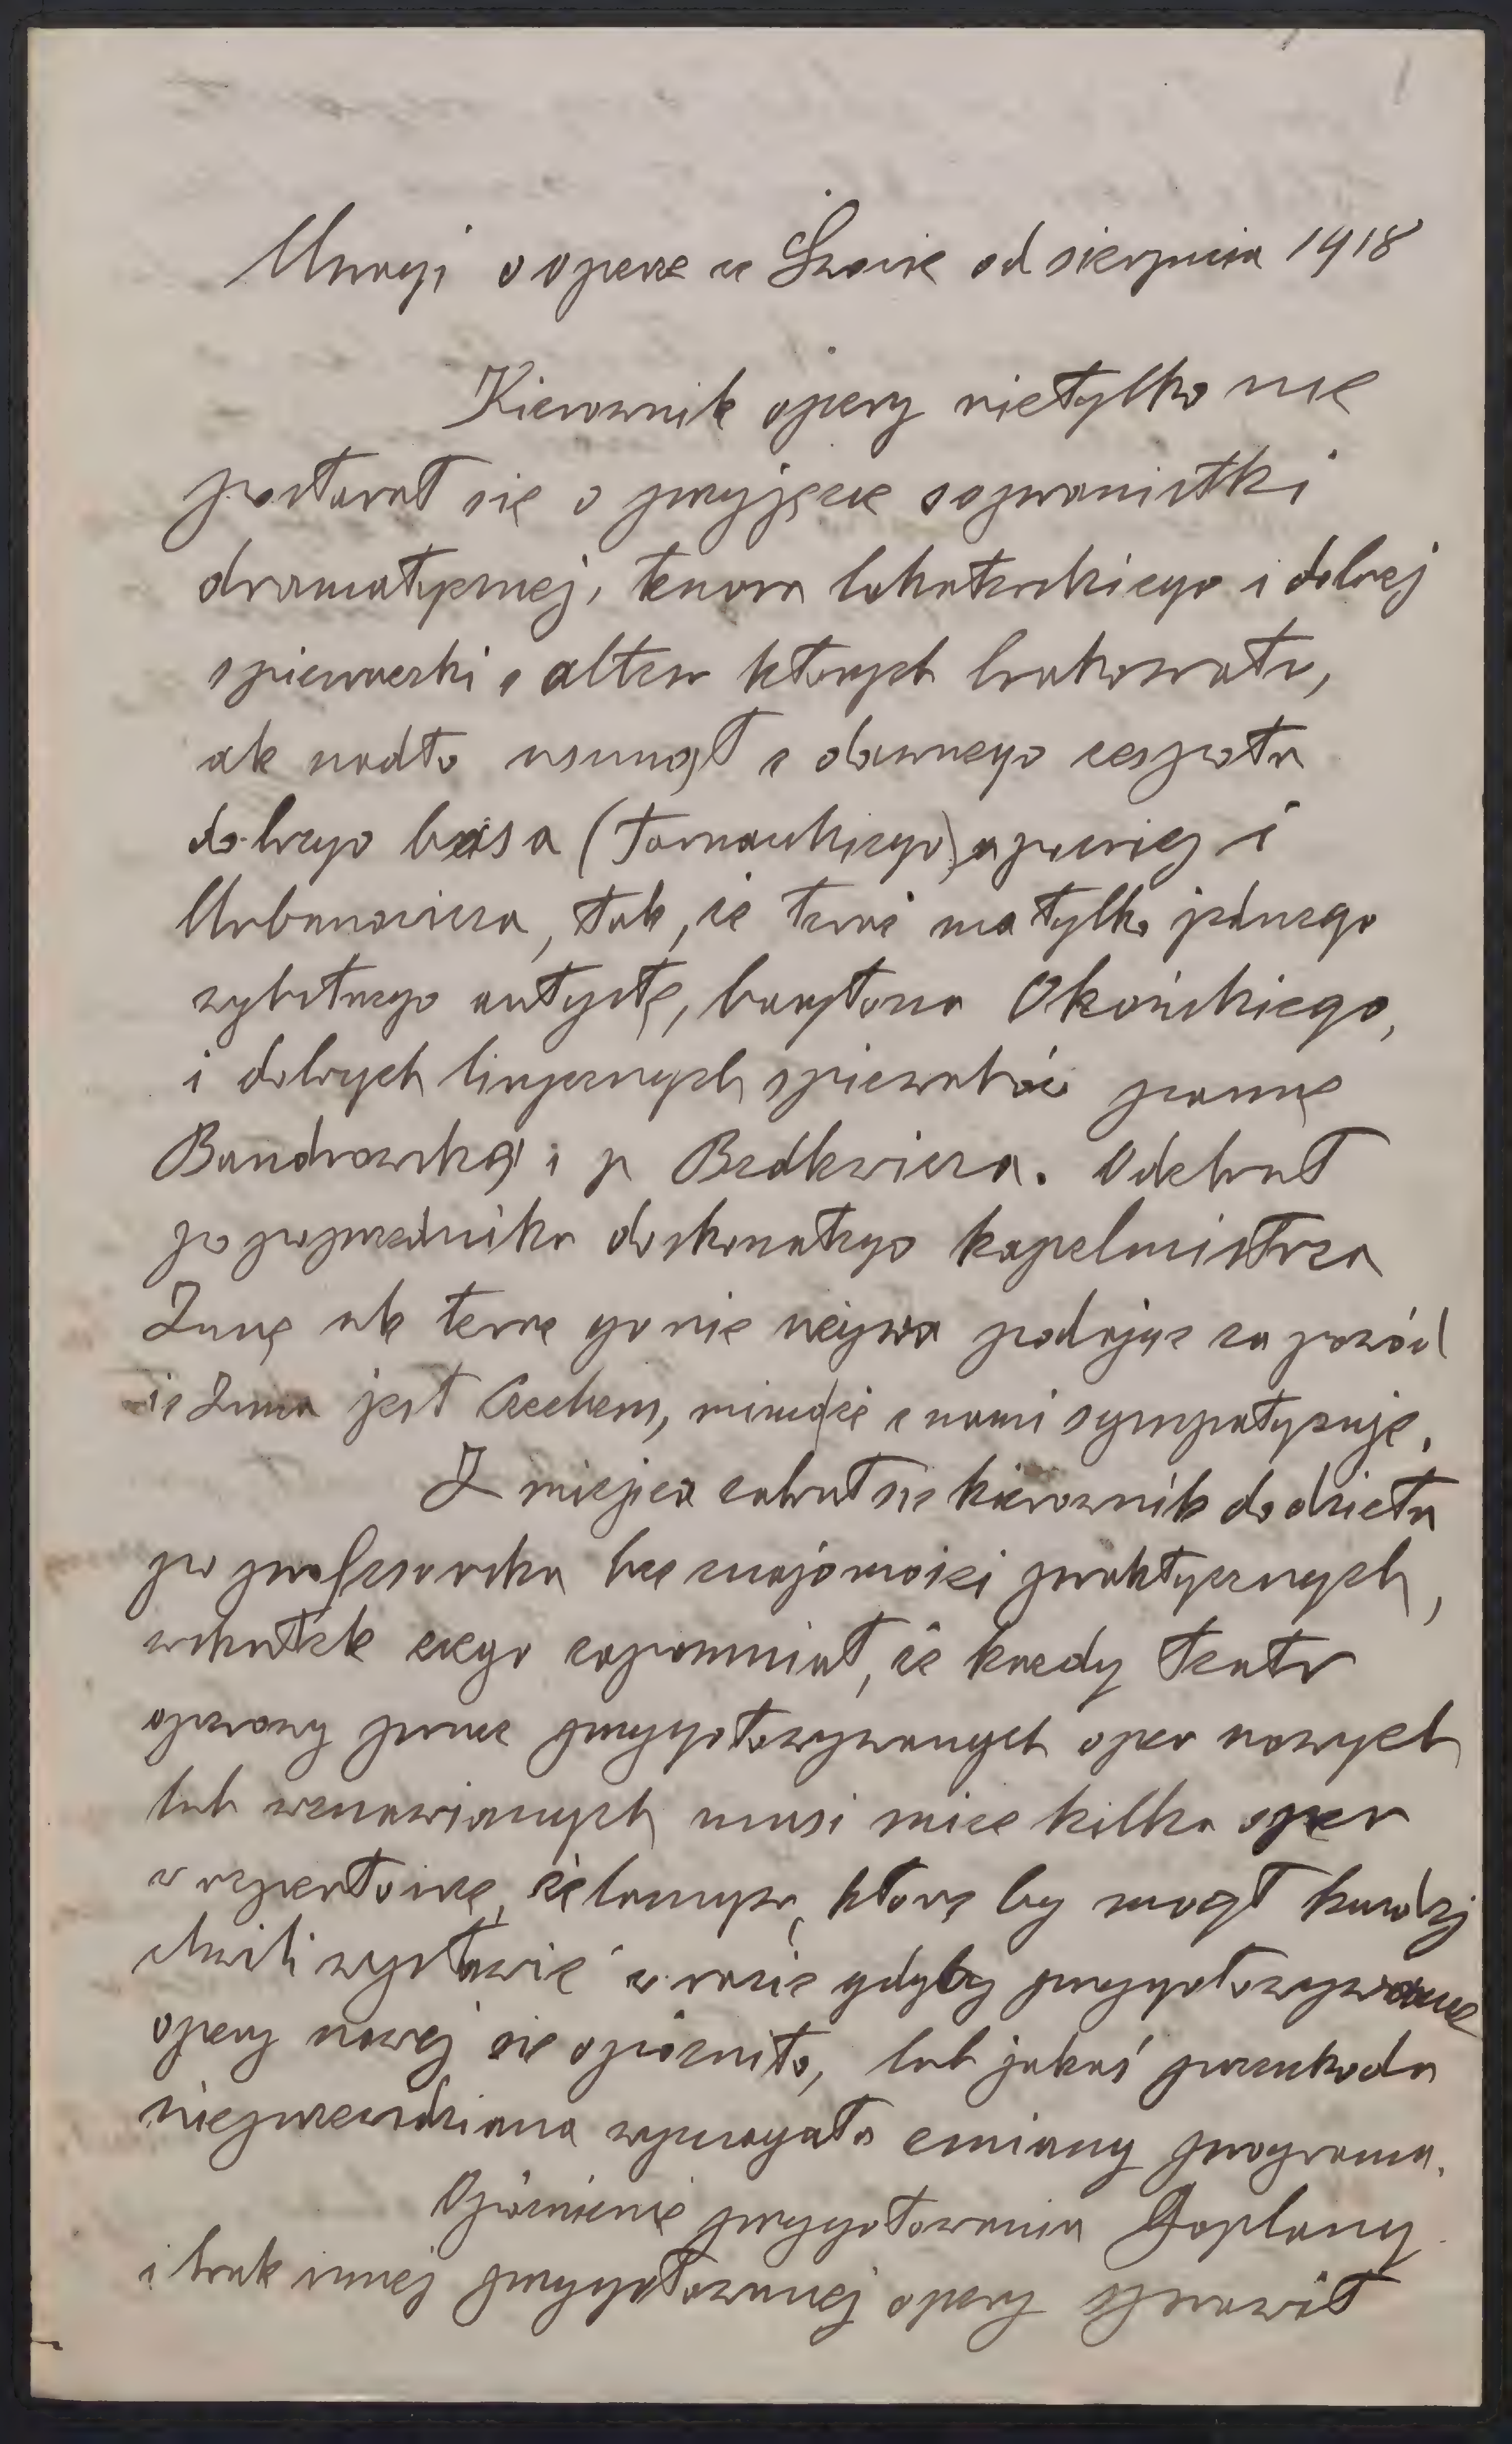 Uwagi o operze we Lwowie od sierpnia 1918
Kierownik opery nietylko nie
postarał się o przyjęcie sopranistki
dramatycznej, tenora bohaterskiego i dobrej
spiewaczki z altem których brakowało,
ale nadto usunął z dawnego zespołu
dobrego basa (Tarnawskiego) a później i
Urbanowicza, tak, że teraz ma tylko jednego
wybitnego artystę, barytona Okońskiego,
i dobrych lirycznych spiewaków pannę
Bandrowską i p Bedlewicza. Odebrał
po poprzedniku doskonałego kapelmistrza
Zunę ale teraz go nie używa podając za powód
że Zuna jest Czechem, mimo że z nami sympatyzuje.
Z miejsca zabrał się kierownik do dzieła
po profesorsku bez znajomości praktycznych,
wskutek czego zapomniał, że każdy teatr
operowy prócz przygotowywanych oper nowych
lub wznawianych musi mieć kilka oper
w repertoirze żelaznym, które by mógł każdej
chwili wystawić w razie gdyby przygotowywanie
opery nowej się opóźniło, lub jakaś przeszkoda
nieprzewidziana wymagała zmiany programu.
Opóźnienie przygotowania Goplany
i brak innej przygotowanej opery sprawił